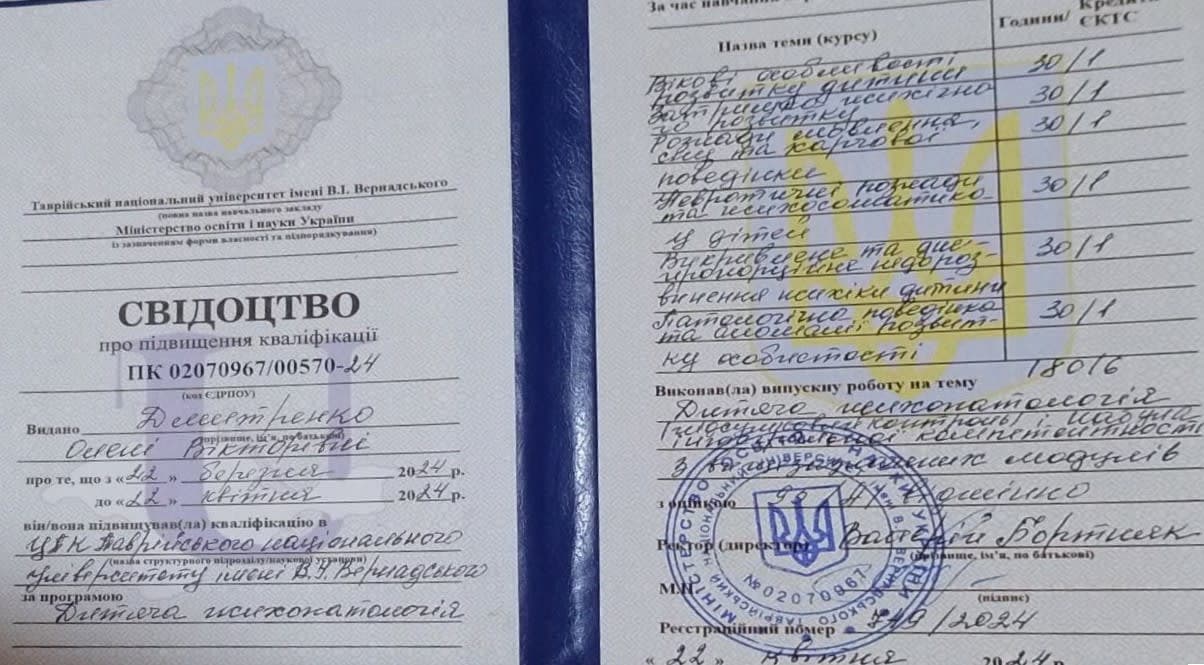 Таврійський національний університет імені В.І. Вернадського
(повна назва навчального закладу
Міністерство освіти і науки України
із зазначенням форми власності та підпорядкування)
СВІДОЦТВО
про підвищення кваліфікації
ПК 02070967/00570-24
(код ЄДРПОУ)
Видано Дмитренко
(прізвище, ім'я, по батькові)
Олені Вікторівні
про те, що з «22» березня 2024 р.
до «22» квітня 2024 р.
він/вона підвищував(ла) кваліфікацію в
ЦПК Таврійського національного
(назва структурного підрозділу/наукової установи)
університету імені В.І. Вернадського
за програмою
Дитяча психопатологія
За час навчання
Назва теми (курсу) Години/ Кредити ЄКТС
Вікові особливості
розвитку дитини 30/1
Затримка психічно
го розвитку 30/1
Розлади мовлення,
сну та харчової 30/1
поведінки
Невротичні розлади
та психосоматика 30/1
у дітей
Викривлене та дис-
пропорційне недороз- 30/1
винення психіки дитини
Патологічна поведінка
та аномалії розвит- 30/1
ку особистості
180/6
Виконав(ла) випускну роботу на тему
Дитяча психопатологія
Підсумковий контроль і набула
компетентності
з модулів
з оцінкою відмінно
Ректор (директор) Валерій Бортняк
(прізвище, ім'я, по батькові)
М.П.
(підпис)
Реєстраційний номер 719/2024
«22» квітня 2024 р.
МІНІСТЕРСТВО ОСВІТИ І НАУКИ УКРАЇНИ
ТАВРІЙСЬКИЙ НАЦІОНАЛЬНИЙ УНІВЕРСИТЕТ імені В.І. ВЕРНАДСЬКОГО
№02070967